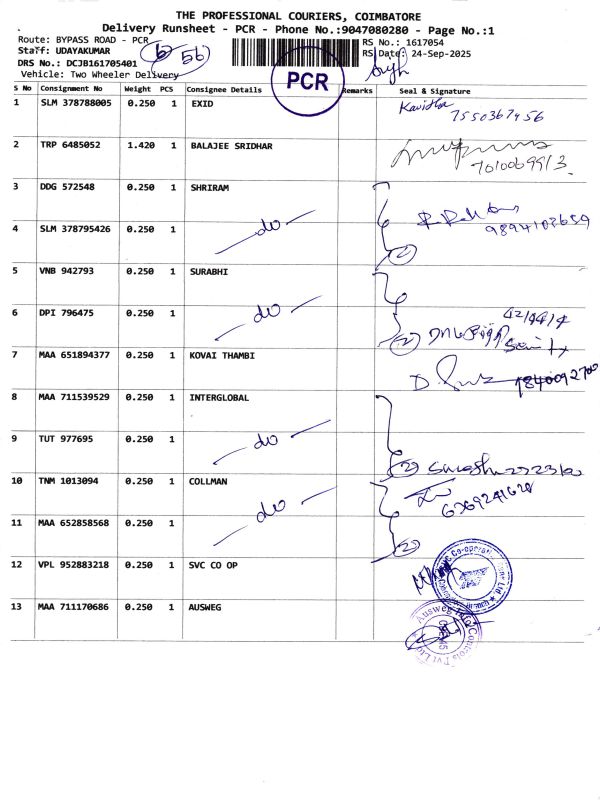 THE PROFESSIONAL COURIERS, COIMBATORE
Delivery Runsheet - PCR - Phone No.:9047080280 - Page No.:1
Route: BYPASS ROAD - PCR
RS No.: 1617054
Staff: UDAYAKUMAR
56
RS Date: 24-Sep-2025
DRS No.: DCJB161705401
Vehicle: Two Wheeler Delivery
PCR
S No Consignment No Weight PCS Consignee Details Remarks Seal & Signature
1 SLM 378788005 0.250 1 EXID Kavitha
7550367456
2 TRP 6485052 1.420 1 BALAJEE SRIDHAR
7010069913
3 DDG 572548 0.250 1 SHRIRAM
9894102659
4 SLM 378795426 0.250 1 — do — 2
5 VNB 942793 0.250 1 SURABHI
6 DPI 796475 0.250 1 — do — 2
7 MAA 651894377 0.250 1 KOVAI THAMBI
8 MAA 711539529 0.250 1 INTERGLOBAL
9 TUT 977695 0.250 1 — do — 2
10 TNM 1013094 0.250 1 COLLMAN
6369241628
11 MAA 652858568 0.250 1 — do — 2
12 VPL 952883218 0.250 1 SVC CO OP
13 MAA 711170686 0.250 1 AUSWEG